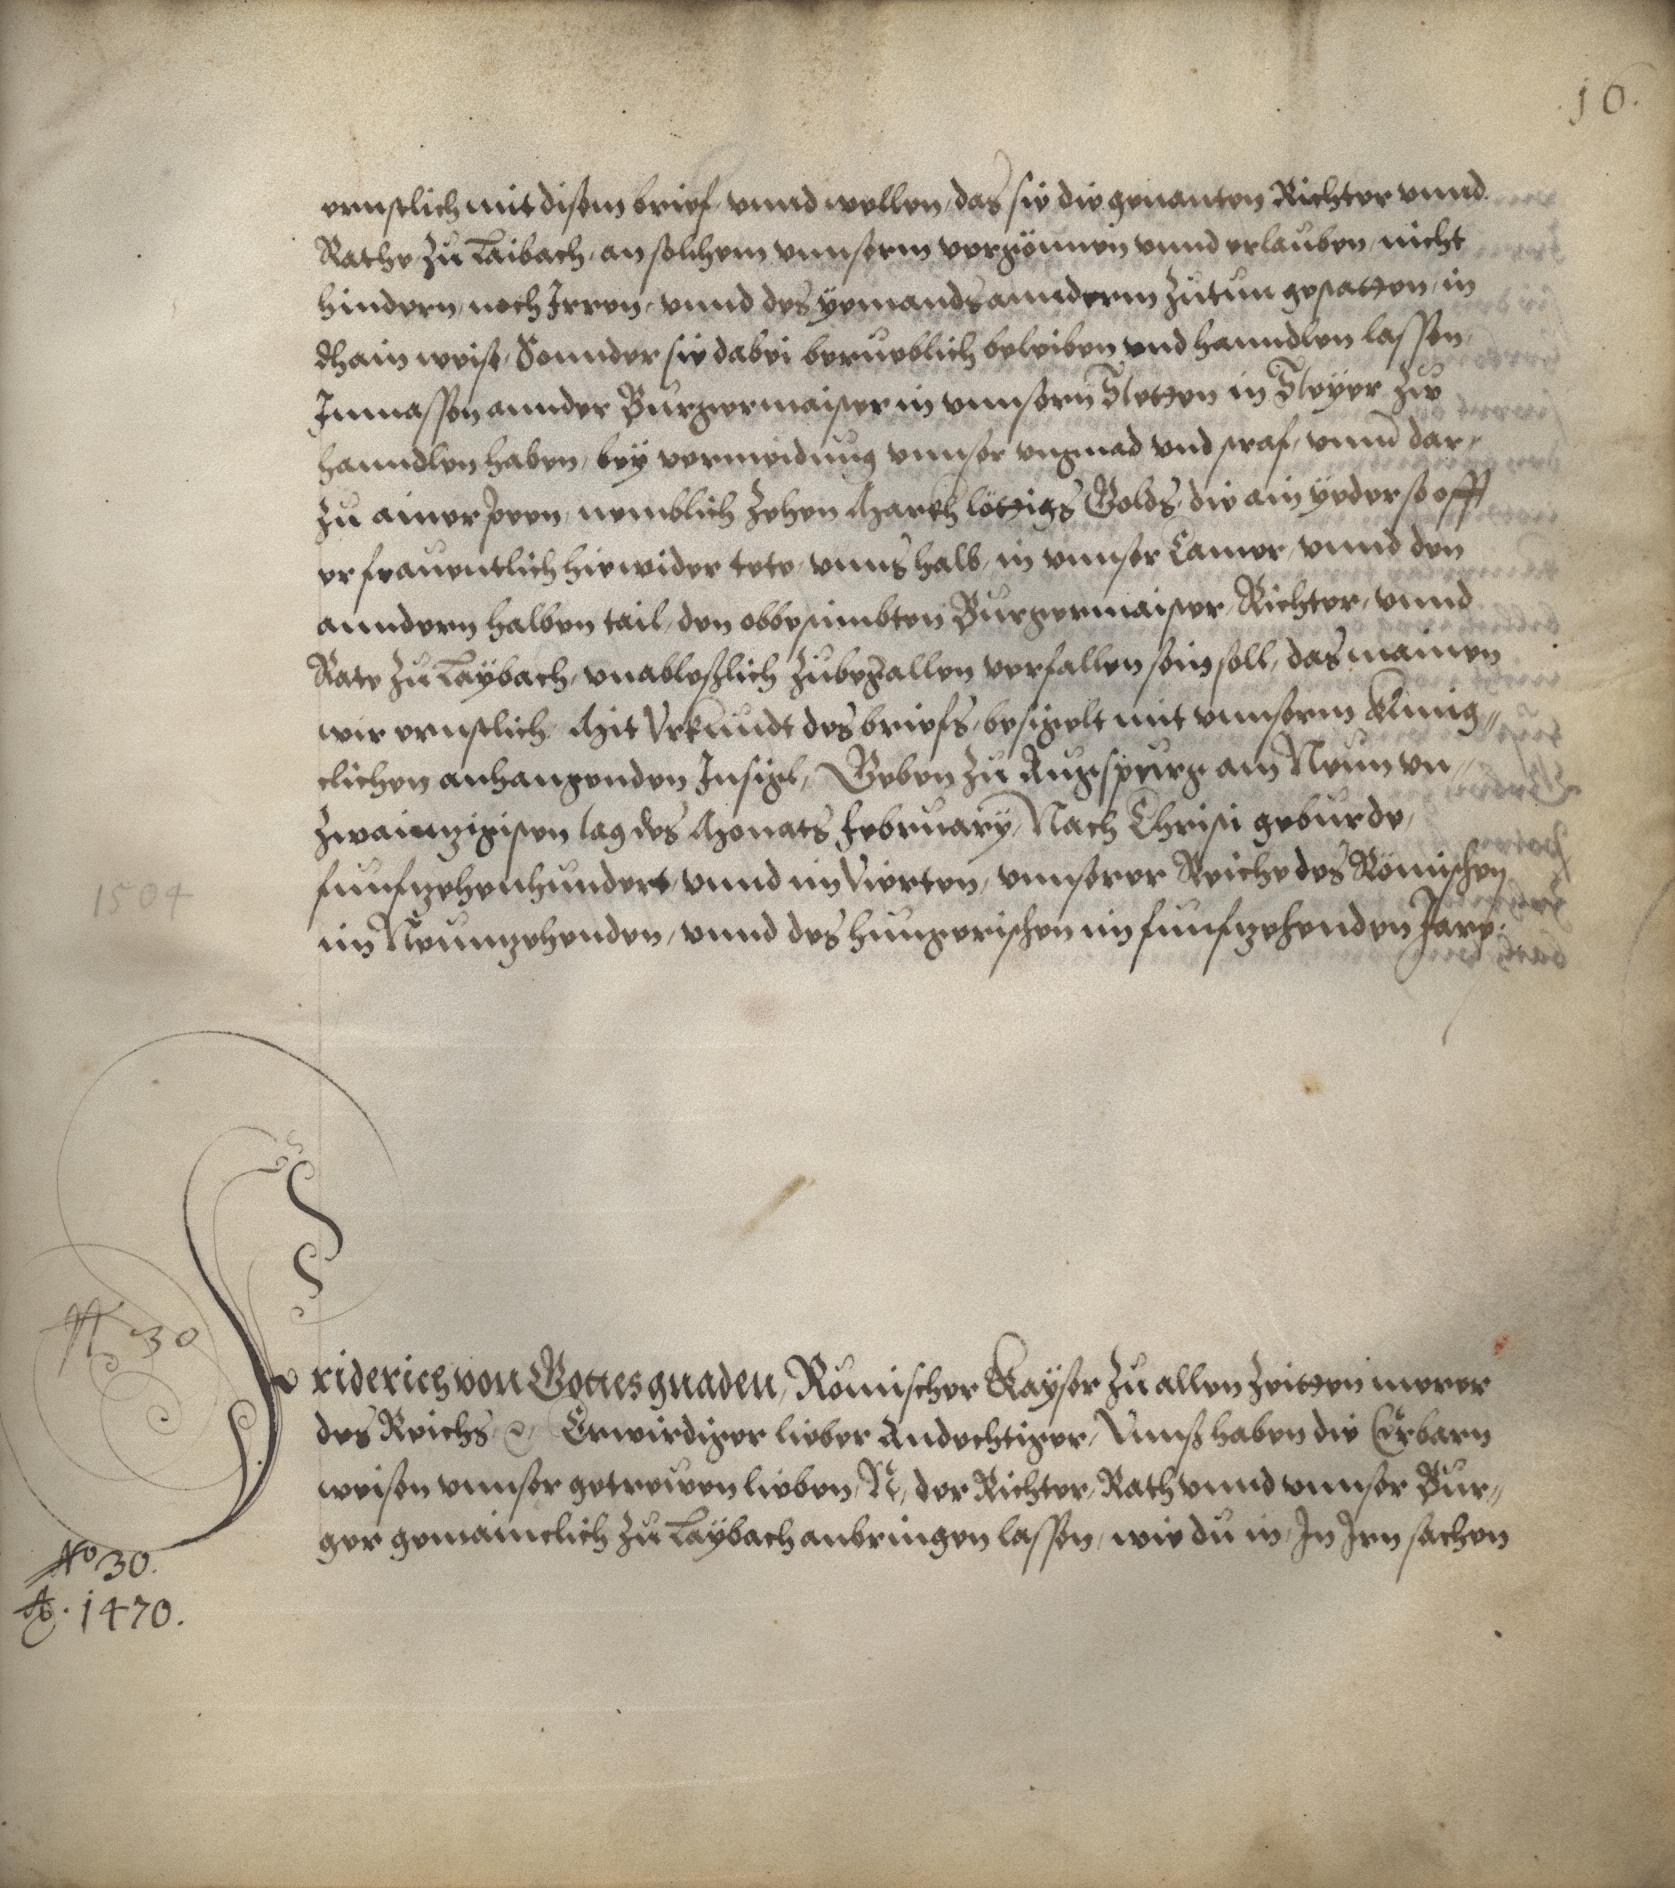 16.
ernstlich mit disem brief, vnnd wellen, das sie die genanten Richter vnnd
Rathe zu Laibach, an solchem vnnserm vergönnen vnnd erlauben, nicht
hindern, noch Jrren, vnnd des yemands anndern zutun gestatten, in
khain weise, Sonnder sie dabei berueblich beleiben vnd hanndlen lassen,
Jnmassen annder Burgermaister in vnnsern Stetten in Steyer zu
hanndlen haben, bey vermeidung vnnser vngnad vnd straf, vnnd dar„
zu ainer peen, nemblich zehen Markh löttigs Golds, die ain yeder so offt
er freuentlich hiewider tete, vnns halb, in vnnser Camer, vnnd den
anndern halben tail, den obbestimbten Burgermaister, Richter, vnnd
Rate zu Laybach, vnableßlich zubezallen verfallen sein soll, das mainen
wir ernstlich, Mit Vrkundt des briefs, besigelt mit vnnserm Künig„
clichen anhangenden Jnsigel, Geben zu Augspurg am Neun vn„
zwainzigisten tag des Monats February, Nach Christi geburde,
funfzehenhundert, vnnd im Vierten, vnnserer Reiche des Römischen
1504
im Neunzehenden, vnnd des hungerischen im funfzehenden Jare.
N 30
Friderich von Gottes gnaden, Römischer Kayser zu allen Zeitten merer
des Reichs, &, Erwirdiger lieber Andechtiger, Vnnß haben die Erbarn
weisen vnnser getrewen lieben, N, der Richter, Rath vnnd vnnser Bur„
ger gemainclich zu Laybach anbringen lassen, wie du in, Jn Jrn sachen
No 30.
Ao. 1470.